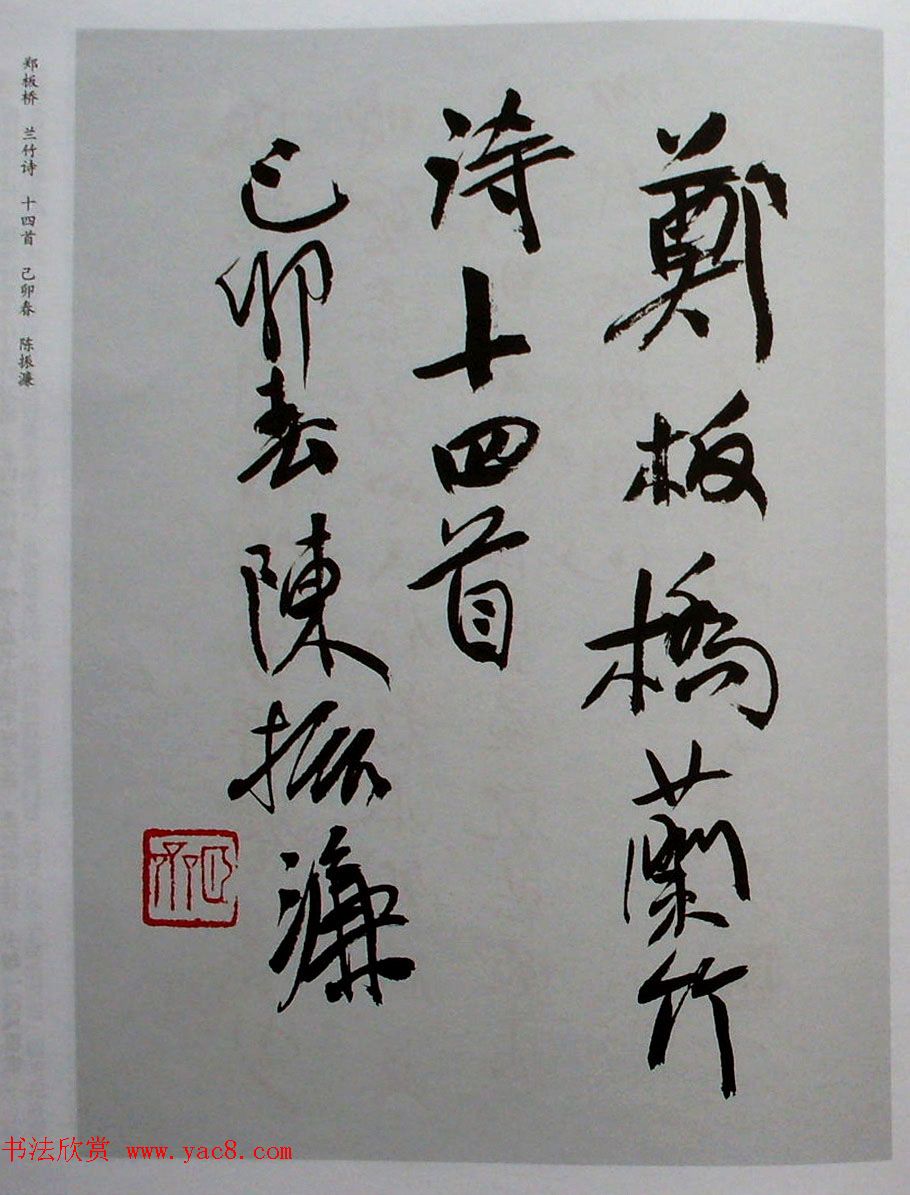 鄭板橋蘭竹
詩十四首
己卯春陳振濂
郑板桥 兰竹诗 十四首 己卯春 陈振濂
书法欣赏 www.yac8.com